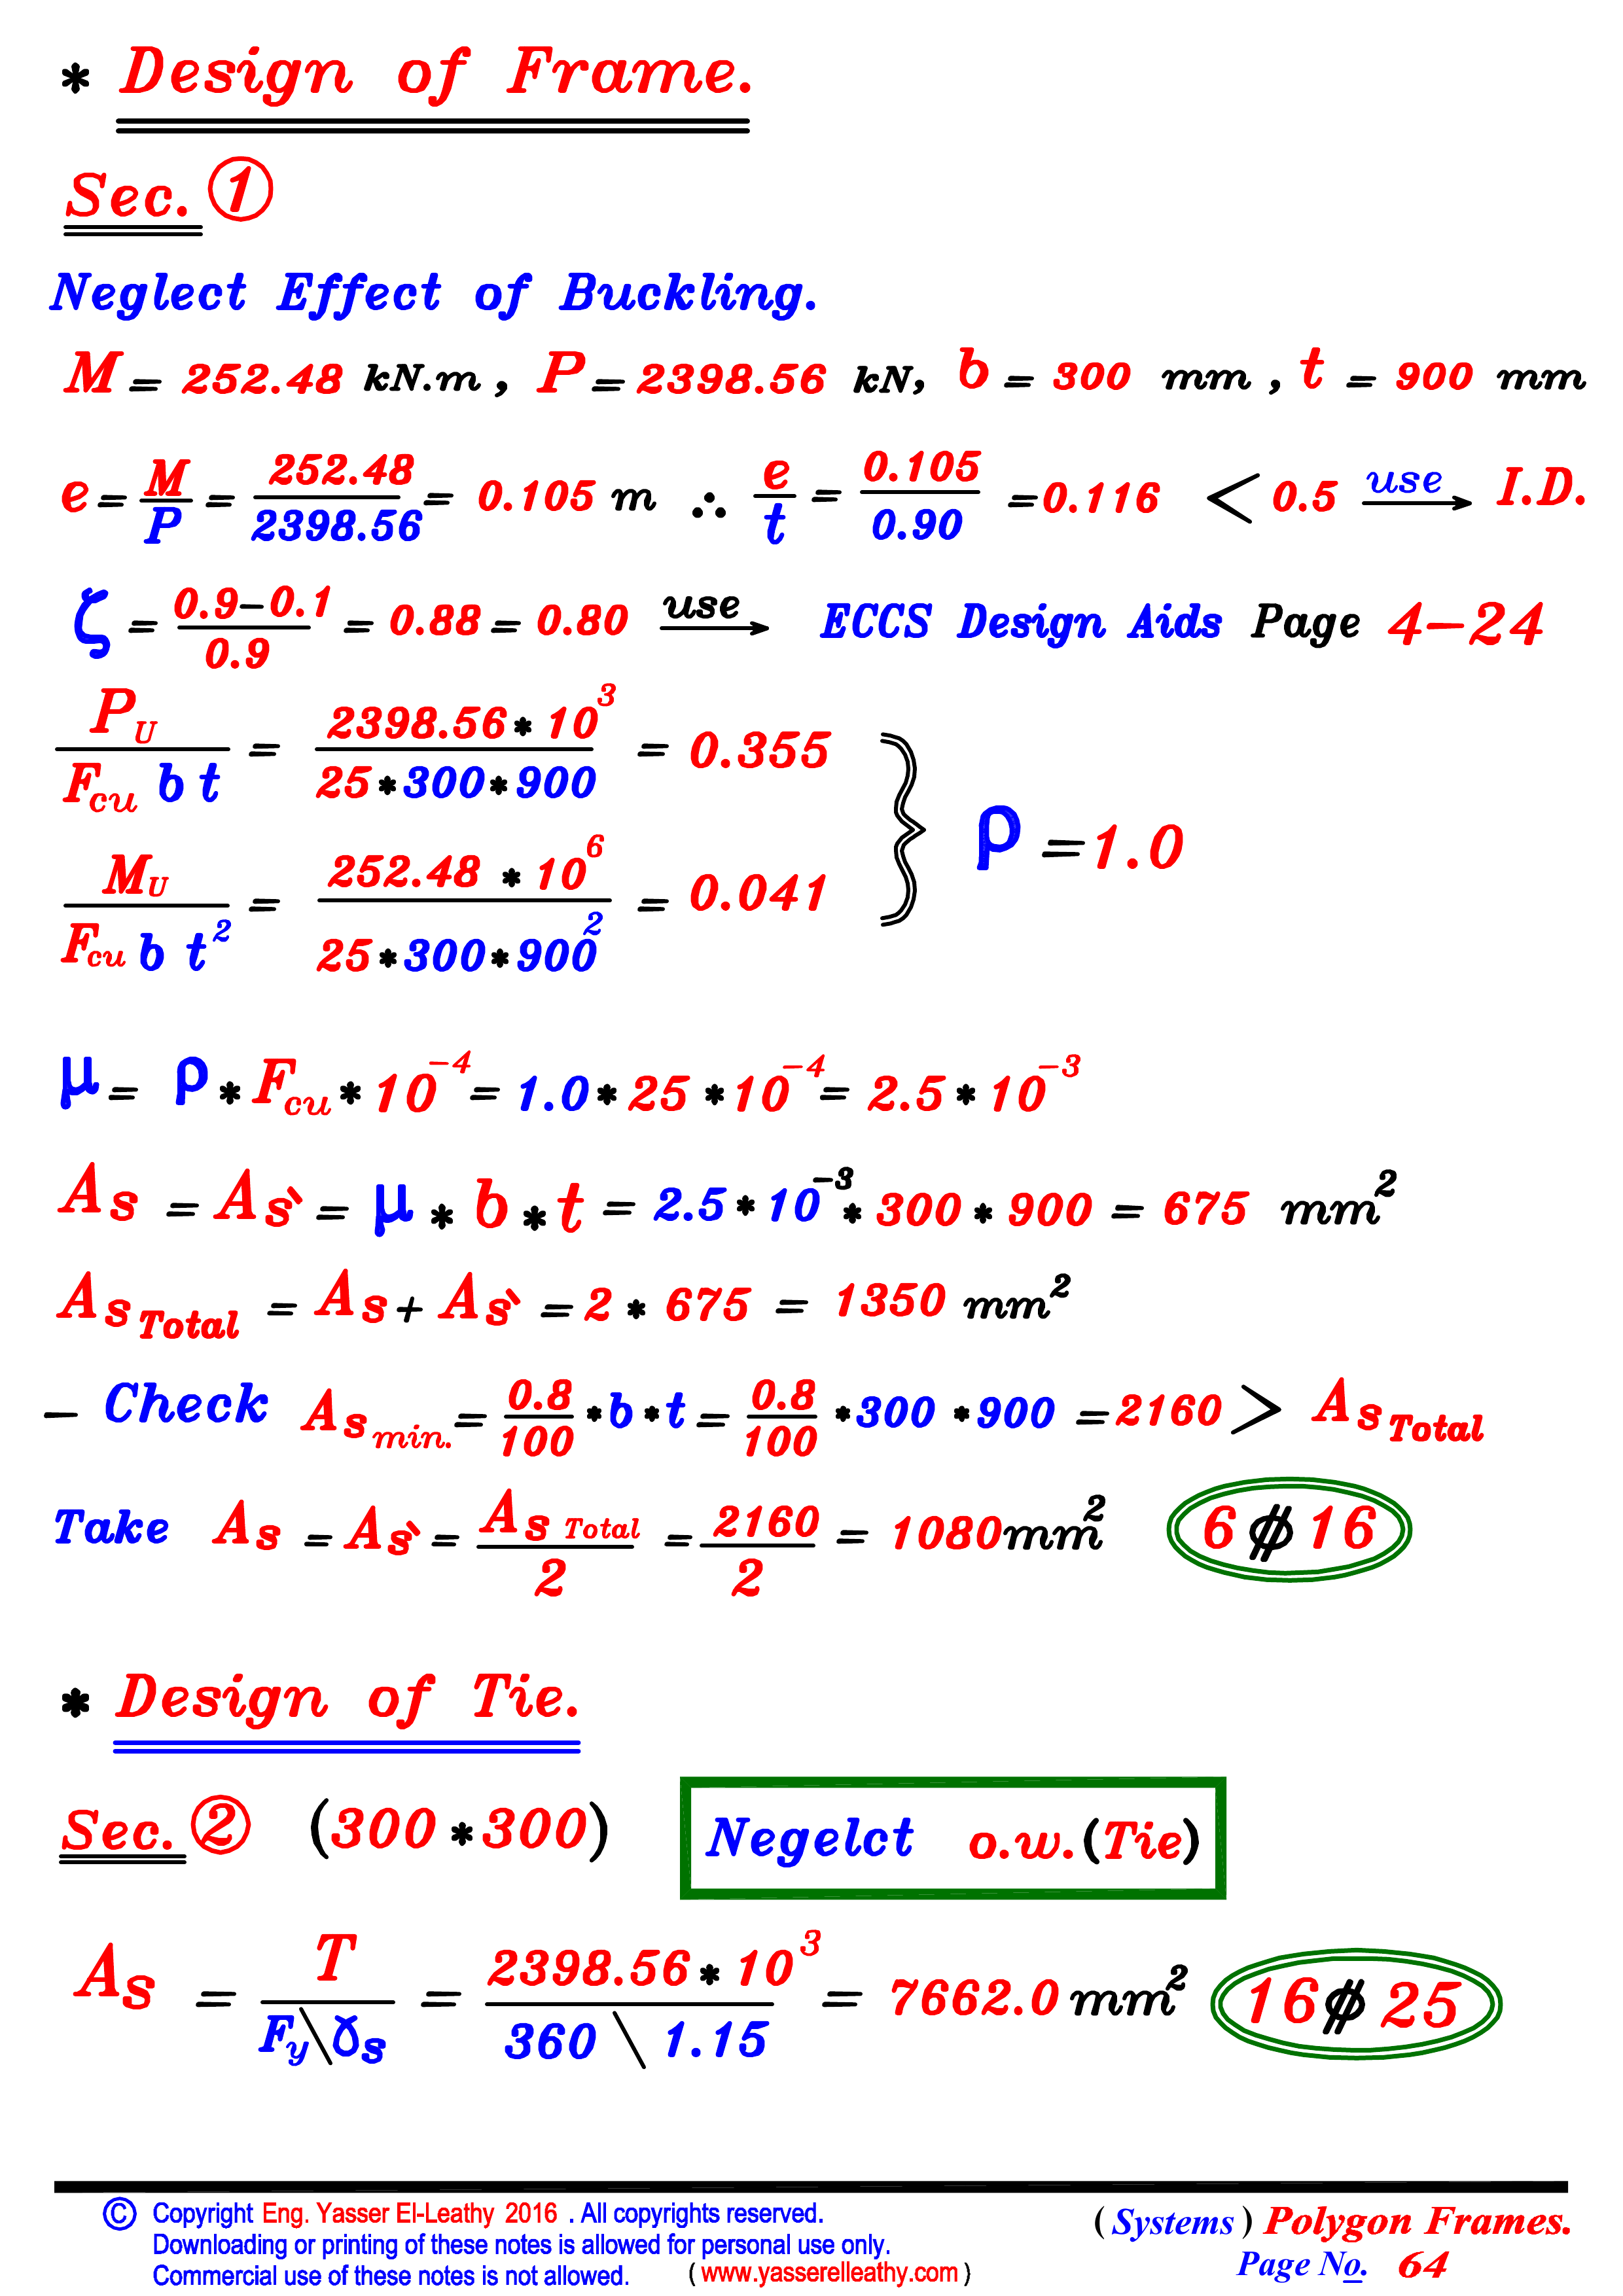 * Design of Frame.
Sec. ①
Neglect Effect of Buckling.
M = 252.48 kN.m , P = 2398.56 kN, b = 300 mm , t = 900 mm
e = M/P = 252.48/2398.56 = 0.105 m ∴ e/t = 0.105/0.90 = 0.116 < 0.5 use→ I.D.
ζ = 0.9-0.1/0.9 = 0.88 = 0.80 use→ ECCS Design Aids Page 4-24
P_U / F_cu b t = 2398.56 * 10^3 / 25 * 300 * 900 = 0.355
M_U / F_cu b t^2 = 252.48 * 10^6 / 25 * 300 * 900^2 = 0.041 } ρ = 1.0
μ = ρ * F_cu * 10^-4 = 1.0 * 25 * 10^-4 = 2.5 * 10^-3
As = As` = μ * b * t = 2.5 * 10^-3 * 300 * 900 = 675 mm^2
As Total = As + As` = 2 * 675 = 1350 mm^2
- Check As min. = 0.8/100 * b * t = 0.8/100 * 300 * 900 = 2160 > As Total
Take As = As` = As Total / 2 = 2160/2 = 1080 mm^2 6 ⌽ 16
* Design of Tie.
Sec. ② (300 * 300) Negelct o.w. (Tie)
As = T / F_y \ γ_s = 2398.56 * 10^3 / 360 \ 1.15 = 7662.0 mm^2 16 ⌽ 25
© Copyright Eng. Yasser El-Leathy 2016 . All copyrights reserved.
Downloading or printing of these notes is allowed for personal use only.
Commercial use of these notes is not allowed. ( www.yasserelleathy.com )
( Systems ) Polygon Frames.
Page No. 64